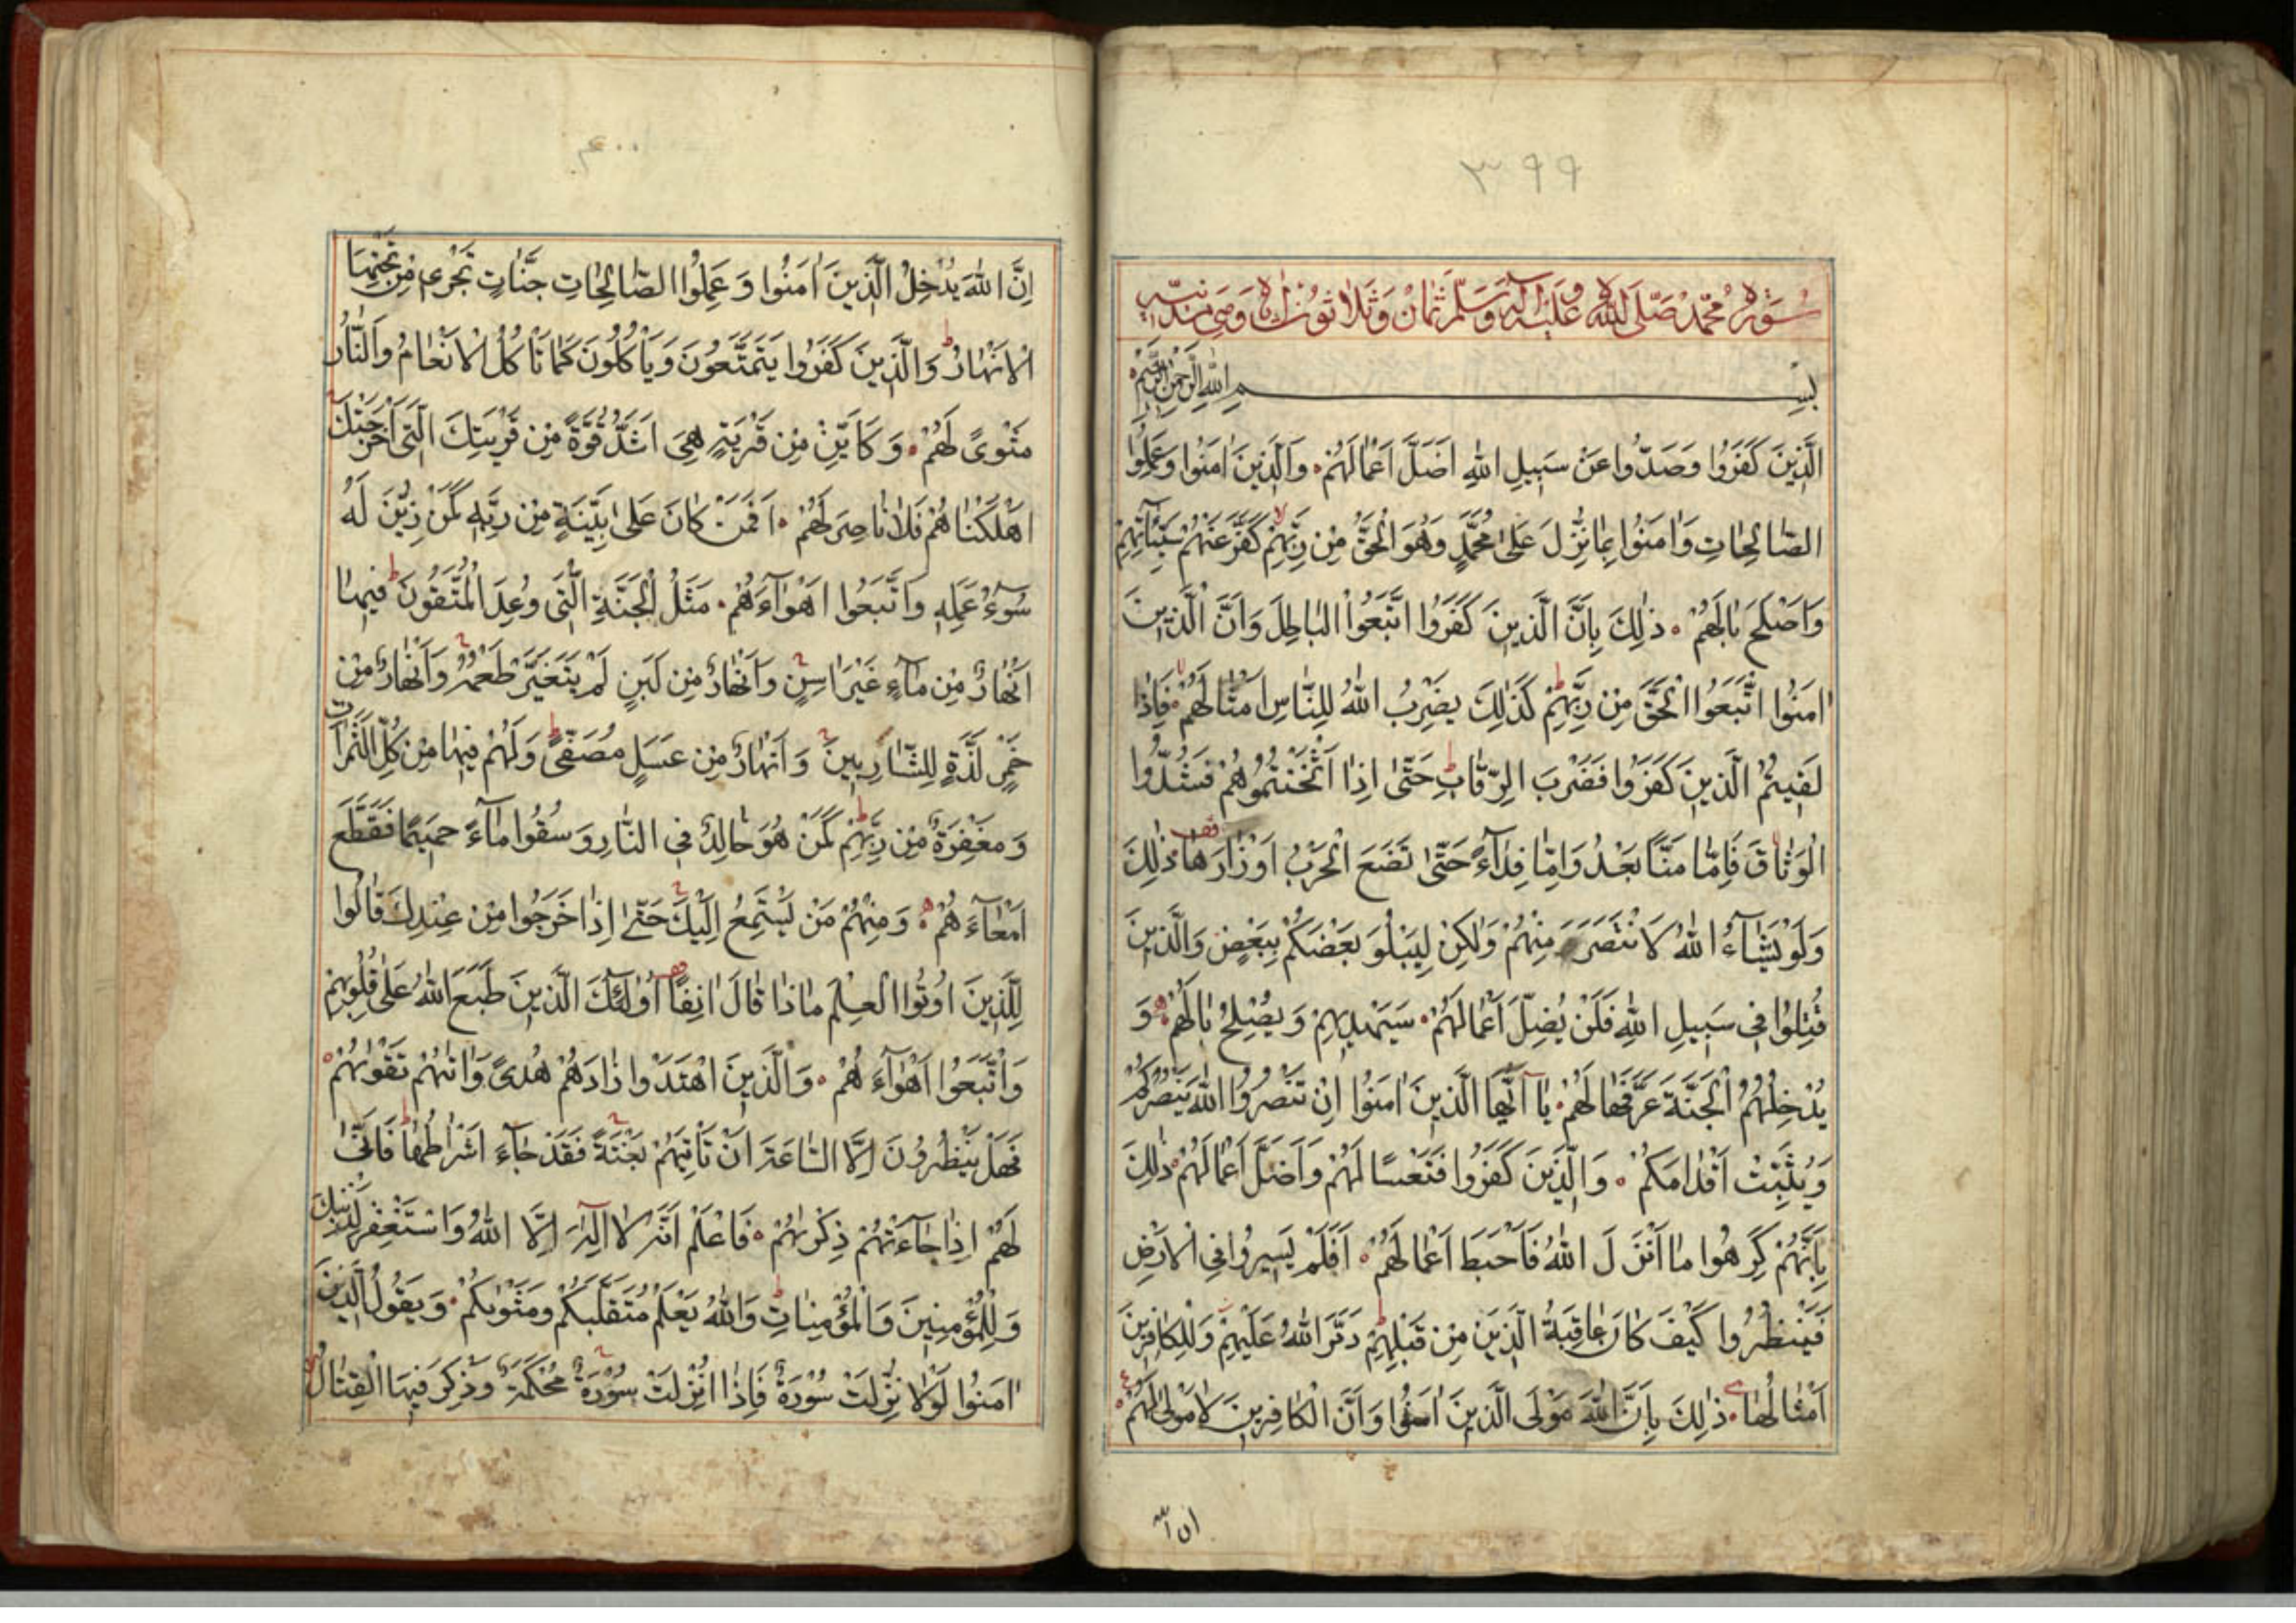 ٣٩٩
سُورَةُ مُحَمَّدْ صَلَّى اللهُ عَلَيْهِ وَآلِهِ وَسَلَّمْ ثَمَانْ وَثَلَاثُونَ وَهِىَ مَدَنِيَّه
بِسْمِ اللهِ الرَّحْمٰنِ الرَّحِيْمِ
الَّذِينَ كَفَرُوا وَصَدُّوا عَنْ سَبِيلِ اللهِ اَضَلَّ اَعْمَالَهُمْ وَالَّذِينَ اٰمَنُوا وَعَمِلُوا
الصَّالِحَاتِ وَاٰمَنُوا بِمَا نُزِّلَ عَلىٰ مُحَمَّدٍ وَهُوَ الْحَقُّ مِنْ رَبِّهِمْ كَفَّرَ عَنْهُمْ سَيِّئَاتِهِمْ
وَاَصْلَحَ بَالَهُمْ ذٰلِكَ بِاَنَّ الَّذِينَ كَفَرُوا اتَّبَعُوا الْبَاطِلَ وَاَنَّ الَّذِينَ
اٰمَنُوا اتَّبَعُوا الْحَقَّ مِنْ رَبِّهِمْ كَذٰلِكَ يَضْرِبُ اللهُ لِلنَّاسِ اَمْثَالَهُمْ فَاِذَا
لَقِيتُمُ الَّذِينَ كَفَرُوا فَضَرْبَ الرِّقَابِ حَتّىٰ اِذَا اَثْخَنْتُمُوهُمْ فَشُدُّوا
الْوَثَاقَ فَاِمَّا مَنًّا بَعْدُ وَاِمَّا فِدَآءً حَتّىٰ تَضَعَ الْحَرْبُ اَوْزَارَهَا ذٰلِكَ
وَلَوْ يَشَآءُ اللهُ لَانْتَصَرَ مِنْهُمْ وَلٰكِنْ لِيَبْلُوَ بَعْضَكُمْ بِبَعْضٍ وَالَّذِينَ
قُتِلُوا فِى سَبِيلِ اللهِ فَلَنْ يُضِلَّ اَعْمَالَهُمْ سَيَهْدِيهِمْ وَيُصْلِحُ بَالَهُمْ وَ
يُدْخِلُهُمُ الْجَنَّةَ عَرَّفَهَا لَهُمْ يَآ اَيُّهَا الَّذِينَ اٰمَنُوا اِنْ تَنْصُرُوا اللهَ يَنْصُرْكُمْ
وَيُثَبِّتْ اَقْدَامَكُمْ وَالَّذِينَ كَفَرُوا فَتَعْسًا لَهُمْ وَاَضَلَّ اَعْمَالَهُمْ ذٰلِكَ
بِاَنَّهُمْ كَرِهُوا مَا اَنْزَلَ اللهُ فَاَحْبَطَ اَعْمَالَهُمْ اَفَلَمْ يَسِيرُوا فِى الْاَرْضِ
فَيَنْظُرُوا كَيْفَ كَانَ عَاقِبَةُ الَّذِينَ مِنْ قَبْلِهِمْ دَمَّرَ اللهُ عَلَيْهِمْ وَلِلْكَافِرِينَ
اَمْثَالُهَا ذٰلِكَ بِاَنَّ اللهَ مَوْلَى الَّذِينَ اٰمَنُوا وَاَنَّ الْكَافِرِينَ لَا مَوْلىٰ لَهُمْ
ان الله
٤٠٠
اِنَّ اللهَ يُدْخِلُ الَّذِينَ اٰمَنُوا وَعَمِلُوا الصَّالِحَاتِ جَنَّاتٍ تَجْرِى مِنْ تَحْتِهَا
الْاَنْهَارُ وَالَّذِينَ كَفَرُوا يَتَمَتَّعُونَ وَيَاْكُلُونَ كَمَا تَاْكُلُ الْاَنْعَامُ وَالنَّارُ
مَثْوىً لَهُمْ وَكَاَيِّنْ مِنْ قَرْيَةٍ هِىَ اَشَدُّ قُوَّةً مِنْ قَرْيَتِكَ الَّتِى اَخْرَجَتْكَ
اَهْلَكْنَاهُمْ فَلَا نَاصِرَ لَهُمْ اَفَمَنْ كَانَ عَلىٰ بَيِّنَةٍ مِنْ رَبِّهِ كَمَنْ زُيِّنَ لَهُ
سُوٓءُ عَمَلِهِ وَاتَّبَعُوا اَهْوَآءَهُمْ مَثَلُ الْجَنَّةِ الَّتِى وُعِدَ الْمُتَّقُونَ فِيهَا
اَنْهَارٌ مِنْ مَآءٍ غَيْرِ اٰسِنٍ وَاَنْهَارٌ مِنْ لَبَنٍ لَمْ يَتَغَيَّرْ طَعْمُهُ وَاَنْهَارٌ مِنْ
خَمْرٍ لَذَّةٍ لِلشَّارِبِينَ وَاَنْهَارٌ مِنْ عَسَلٍ مُصَفّىً وَلَهُمْ فِيهَا مِنْ كُلِّ الثَّمَرَاتِ
وَمَغْفِرَةٌ مِنْ رَبِّهِمْ كَمَنْ هُوَ خَالِدٌ فِى النَّارِ وَسُقُوا مَآءً حَمِيمًا فَقَطَّعَ
اَمْعَآءَهُمْ وَمِنْهُمْ مَنْ يَسْتَمِعُ اِلَيْكَ حَتّىٰ اِذَا خَرَجُوا مِنْ عِنْدِكَ قَالُوا
لِلَّذِينَ اُوتُوا الْعِلْمَ مَاذَا قَالَ اٰنِفًا اُولٰئِكَ الَّذِينَ طَبَعَ اللهُ عَلىٰ قُلُوبِهِمْ
وَاتَّبَعُوا اَهْوَآءَهُمْ وَالَّذِينَ اهْتَدَوْا زَادَهُمْ هُدىً وَاٰتٰيهُمْ تَقْوٰيهُمْ
فَهَلْ يَنْظُرُونَ اِلَّا السَّاعَةَ اَنْ تَاْتِيَهُمْ بَغْتَةً فَقَدْ جَآءَ اَشْرَاطُهَا فَاَنّىٰ
لَهُمْ اِذَا جَآءَتْهُمْ ذِكْرٰيهُمْ فَاعْلَمْ اَنَّهُ لَآ اِلٰهَ اِلَّا اللهُ وَاسْتَغْفِرْ لِذَنْبِكَ
وَلِلْمُؤْمِنِينَ وَالْمُؤْمِنَاتِ وَاللهُ يَعْلَمُ مُتَقَلَّبَكُمْ وَمَثْوٰيكُمْ وَيَقُولُ الَّذِينَ
اٰمَنُوا لَوْلَا نُزِّلَتْ سُورَةٌ فَاِذَا اُنْزِلَتْ سُورَةٌ مُحْكَمَةٌ وَذُكِرَ فِيهَا الْقِتَالُ